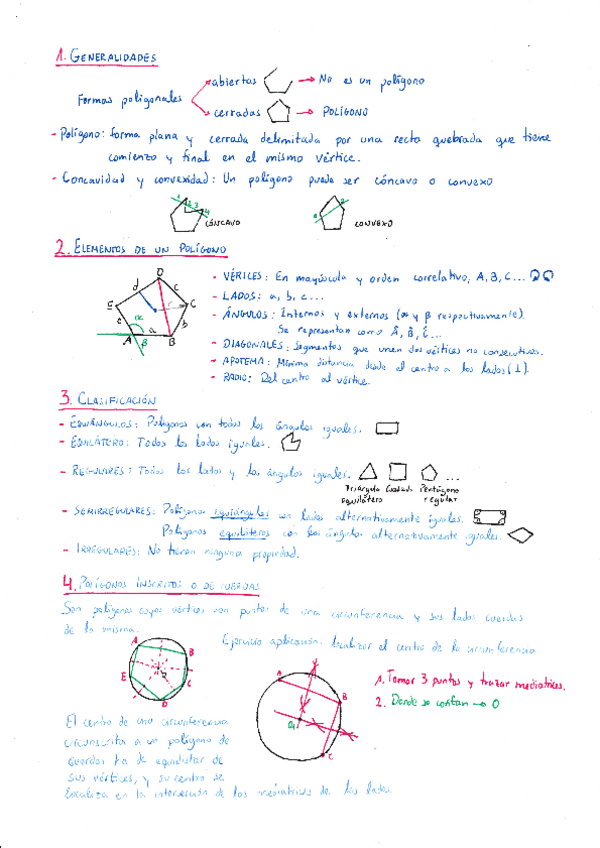 1. GENERALIDADES
Formas poligonales
abiertas → No es un polígono
cerradas → POLÍGONO
- Polígono: forma plana y cerrada delimitada por una recta quebrada que tiene
comienzo y final en el mismo vértice.
- Concavidad y convexidad: Un polígono puede ser cóncavo o convexo
1 2 3 4
CÓNCAVO
1 2
CONVEXO
2. ELEMENTOS DE UN POLÍGONO
D
d c
e r C
e b
α a
A β B
- VÉRTICES: En mayúscula y orden correlativo, A, B, C...
- LADOS: a, b, c...
- ÁNGULOS: Internos y externos (α y β respectivamente).
Se representan como Â, B̂, Ĉ...
- DIAGONALES: Segmentos que unen dos vértices no consecutivos.
- APOTEMA: Mínima distancia desde el centro a los lados (⊥).
- RADIO: Del centro al vértice.
3. CLASIFICACIÓN
- EQUIÁNGULOS: Polígonos con todos los ángulos iguales.
- EQUILÁTERO: Todos los lados iguales.
- REGULARES: Todos los lados y los ángulos iguales. ...
Triángulo Cuadrado Pentágono
equilátero regular
- SEMIRREGULARES: Polígonos equiángulos con lados alternativamente iguales.
Polígonos equiláteros con los ángulos alternativamente iguales.
- IRREGULARES: No tienen ninguna propiedad.
4. POLÍGONOS INSCRITOS O DE CUERDAS
Son polígonos cuyos vértices son puntos de una circunferencia y sus lados cuerdas
de la misma.
Ejercicio aplicación: localizar el centro de la circunferencia
A
B
E
C
D
A
B
C
1. Tomar 3 puntos y trazar mediatrices.
2. Donde se cortan → O
El centro de una circunferencia
circunscrita a un polígono de
cuerdas ha de equidistar de
sus vértices, y su centro se
localiza en la intersección de las mediatrices de los lados.